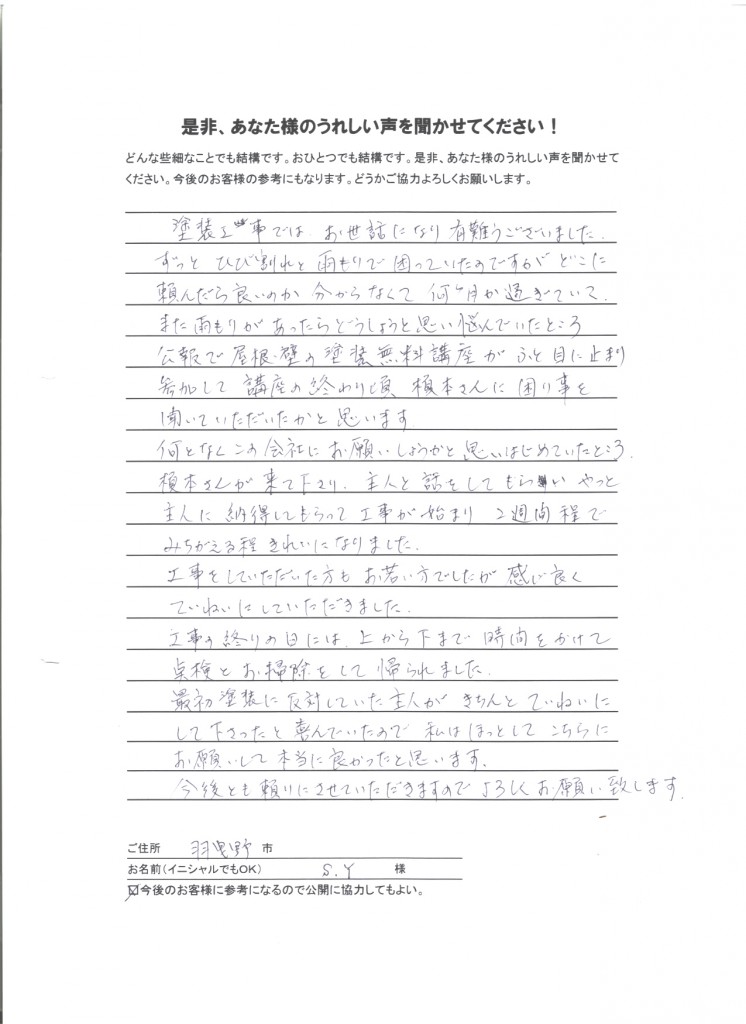 是非、あなた様のうれしい声を聞かせてください！
どんな些細なことでも結構です。おひとつでも結構です。是非、あなた様のうれしい声を聞かせて
ください。今後のお客様の参考にもなります。どうかご協力よろしくお願いします。
塗装工事では お世話になり 有難うございました。
ずっと ひび割れと 雨もりで 困っていたのですが どこに
頼んだら良いのか 分からなくて 何ヶ月か過ぎていて、
また雨もりがあったらどうしようと思い悩んでいたところ
公報で屋根・壁の塗装無料講座が ふと目に止まり
参加して 講座の終わり頃 榎本さんに 困り事を
聞いていただいたかと思います
何となくこの会社にお願いしようかと思いはじめていたところ、
榎本さんが来て下さり、主人と話をしてもらい やっと
主人に納得してもらって工事が始まり 2週間程で
みちがえる程きれいになりました。
工事をしていただいた方も お若い方でしたが 感じ良く
ていねいにしていただきました。
工事の終りの日には、上から下まで 時間をかけて
点検とお掃除をして帰られました。
最初塗装に反対していた主人が きちんとていねいに
して下さったと喜んでいたので 私はほっとして こちらに
お願いして本当に良かったと思います。
今後とも頼りにさせていただきますのでよろしくお願い致します。
ご住所 羽曳野 市
お名前(イニシャルでもOK) S.Y 様
☑今後のお客様に参考になるので公開に協力してもよい。